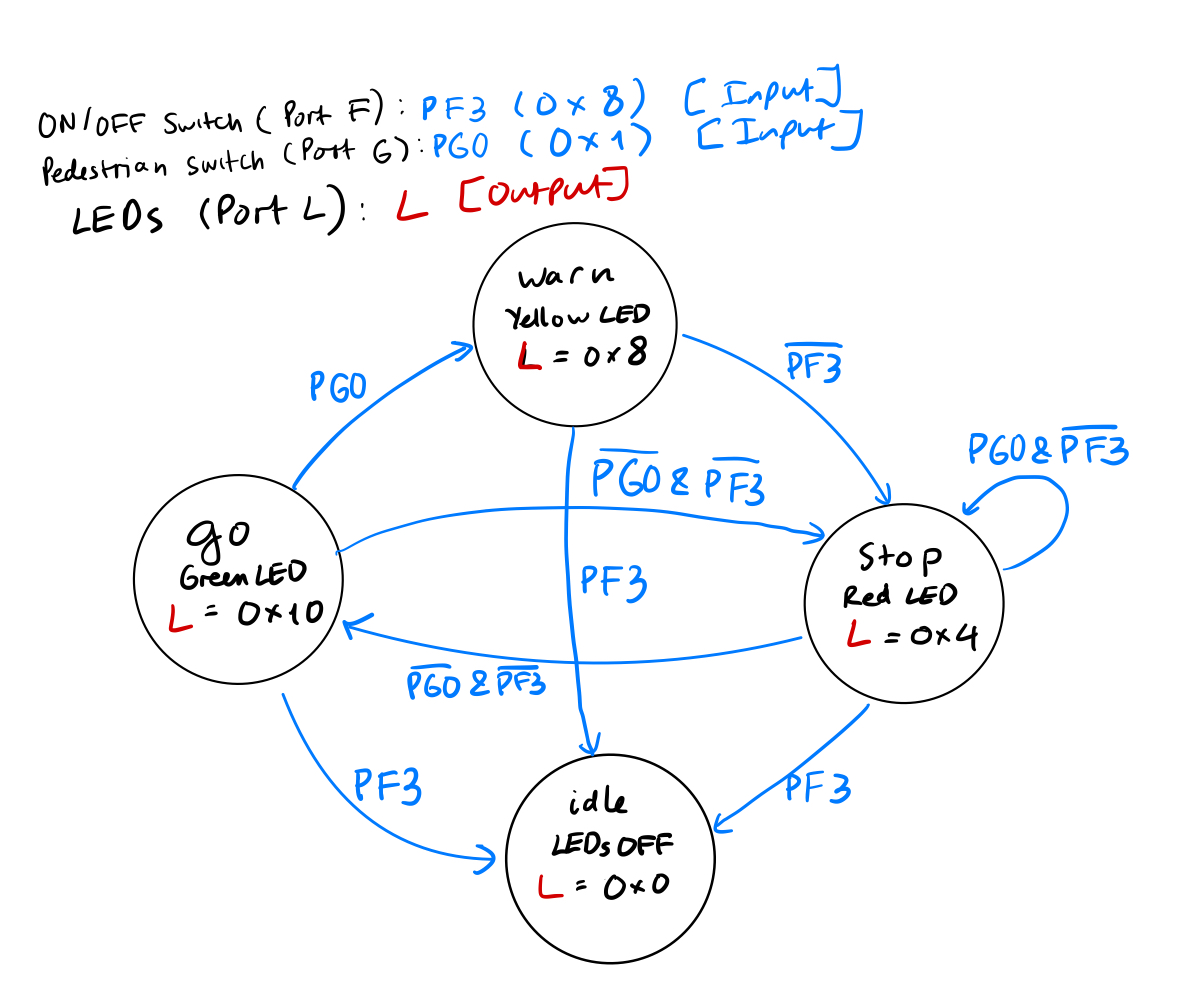 ON/OFF Switch (Port F): PF3 (0x8) [Input]
Pedestrian Switch (Port G): PG0 (0x1) [Input]
LEDs (Port L): L [Output]
Warn
Yellow LED
L = 0x8
PG0
P̅F̅3̅
P̅G̅0̅ & P̅F̅3̅
PG0 & P̅F̅3̅
go
Green LED
L = 0x10
PF3
Stop
Red LED
L = 0x4
P̅G̅0̅ & P̅F̅3̅
PF3
PF3
idle
LEDs OFF
L = 0x0